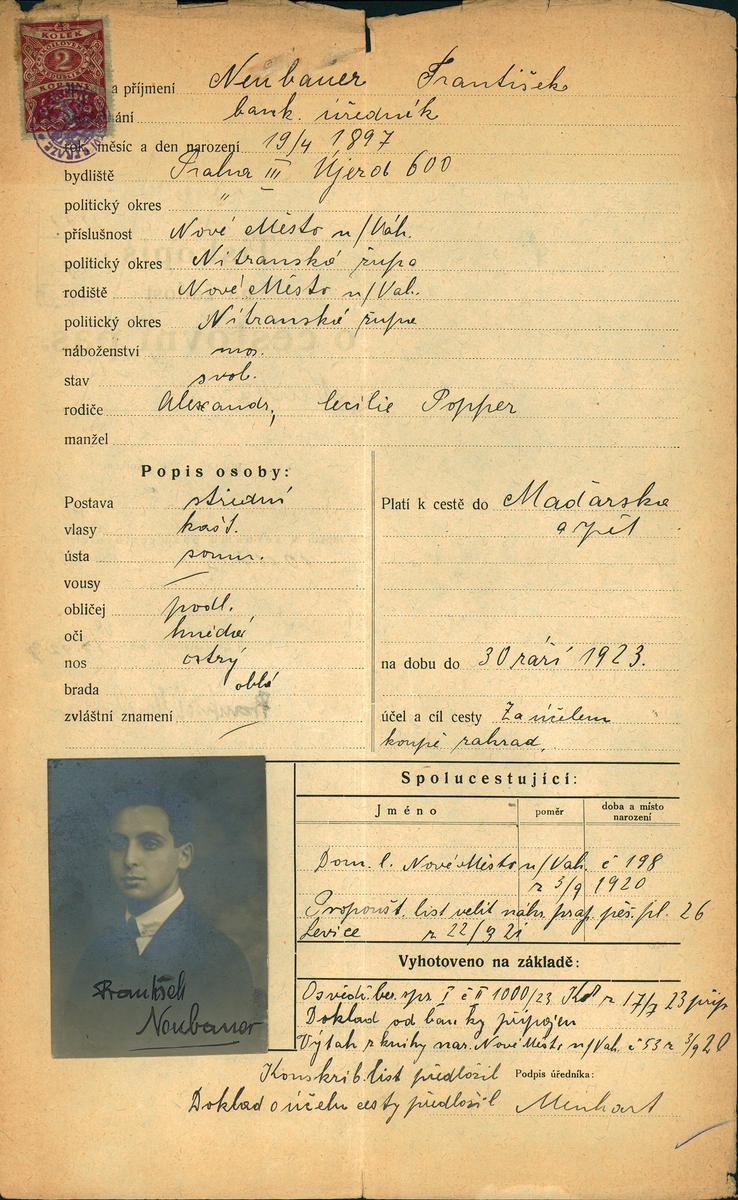 KOLEK
2
a příjmení Neubauer František
bank. úředník
rok, měsíc a den narození 19/4 1897
bydliště Praha III Újezd 600
politický okres "
příslušnost Nové Město n/Váh.
politický okres Nitranská župa
rodiště Nové Město n/Vah.
politický okres Nitranská župa
náboženství mos.
stav svob.
rodiče Alexandr, Cecilie Popper
manžel
Popis osoby:
Postava střední
vlasy kašt.
ústa soum.
vousy —
obličej podl.
oči hnědé
nos ostrý
brada oblá
zvláštní znamení —
Platí k cestě do Maďarska
a zpět
na dobu do 30 září 1923.
účel a cíl cesty Za účelem
koupě zahrad.
Spolucestující:
Jméno poměr doba a místo
narození
Dom. l. Nové Město n/Vah. č 198
z 3/9 1920
Propoušt. list velit. náhr. prap. pěš. pl. 26
Levice z 22/9 21
Vyhotoveno na základě:
Osvědč. ber. spr. I č II 1000/23 z 17/7 23 přip
Doklad od banky připojen
Výtah z knihy nar. Nové Město n/Vah. č 53 z 3/9 20
Konskrib. list předložil Podpis úředníka:
Doklad o účelu cesty předložil Menhart
František
Neubauer